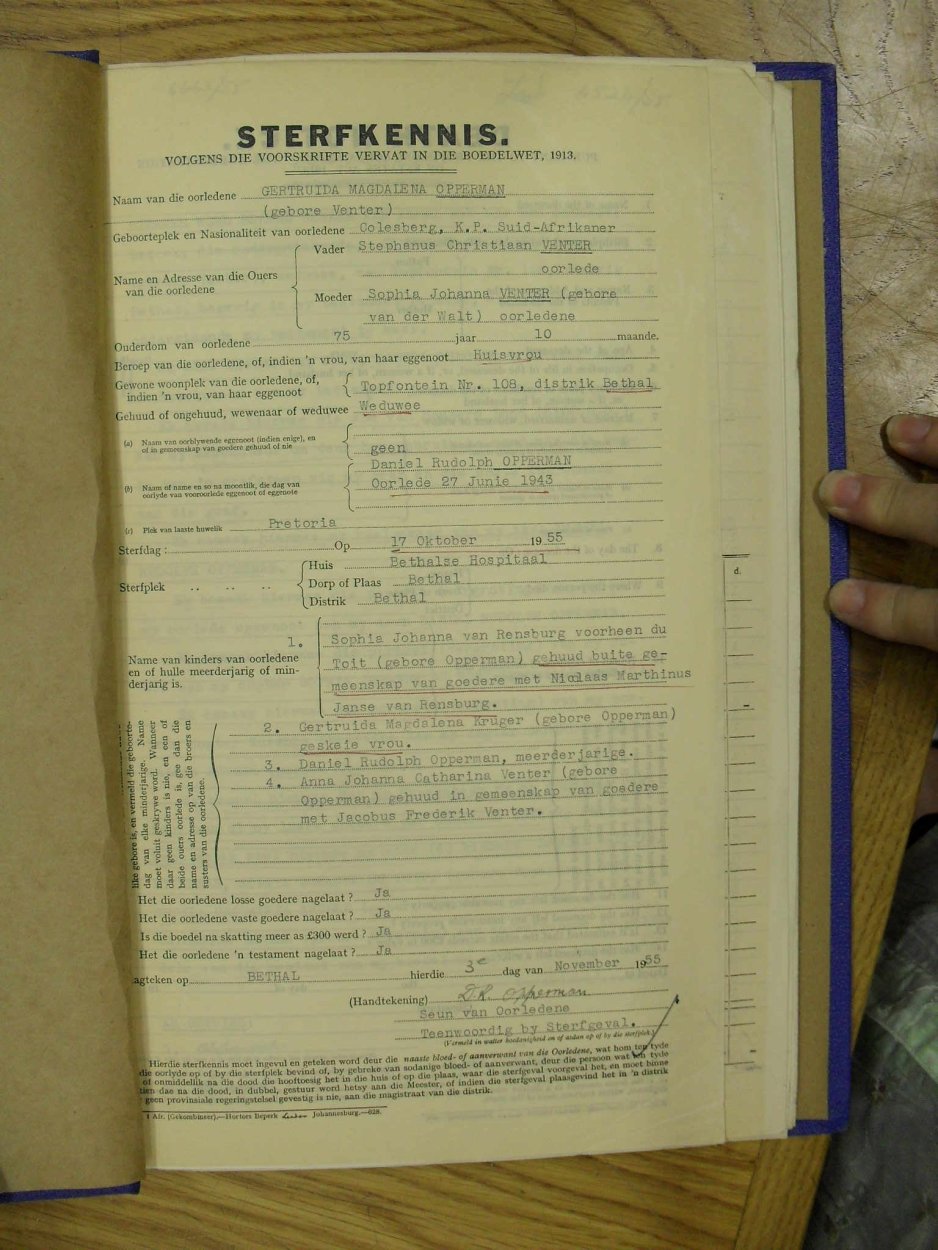 STERFKENNIS.
VOLGENS DIE VOORSKRIFTE VERVAT IN DIE BOEDELWET, 1913.
Naam van die oorledene GERTRUIDA MAGDALENA OPPERMAN
(gebore Venter)
Geboorteplek en Nasionaliteit van oorledene Colesberg, K.P. Suid-Afrikaner
Name en Adresse van die Ouers van die oorledene
Vader Stephanus Christiaan VENTER
oorlede
Moeder Sophia Johanna VENTER (gebore
van der Walt) oorledene
Ouderdom van oorledene 75 jaar 10 maande.
Beroep van die oorledene, of, indien 'n vrou, van haar eggenoot Huisvrou
Gewone woonplek van die oorledene, of,
indien 'n vrou, van haar eggenoot
Topfontein Nr. 108, distrik Bethal
Gehuud of ongehuud, wewenaar of weduwee Weduwee
(a) Naam van oorblywende eggenoot (indien enige), en
of in gemeenskap van goedere gehuud of nie
geen
Daniel Rudolph OPPERMAN
(b) Naam of name en so na moontlik, die dag van
oorlyde van vooroorlede eggenoot of eggenote
Oorlede 27 Junie 1943
(c) Plek van laaste huwelik Pretoria
Sterfdag : Op 17 Oktober 1955
Sterfplek .. .. ..
Huis Bethalse Hospitaal
Dorp of Plaas Bethal
Distrik Bethal
1.
Name van kinders van oorledene
en of hulle meerderjarig of min-
derjarig is.
Sophia Johanna van Rensburg voorheen du
Toit (gebore Opperman) gehuud buite ge-
meenskap van goedere met Nicolaas Marthinus
Janse van Rensburg.
2. Gertruida Magdalena Krüger (gebore Opperman)
geskeie vrou.
3. Daniel Rudolph Opperman, meerderjarige.
4. Anna Johanna Catharina Venter (gebore
Opperman) gehuud in gemeenskap van goedere
met Jacobus Frederik Venter.
like gebore is, en vermeld die geboorte-
dag van elke minderjarige. Name
moet voluit geskrywe word. Wanneer
daar geen kinders is nie, en een of
beide ouers oorlede is, gee dan die
name en adresse op van die broers en
susters van die oorledene.
Het die oorledene losse goedere nagelaat ? Ja
Het die oorledene vaste goedere nagelaat ? Ja
Is die boedel na skatting meer as £300 werd ? Ja
Het die oorledene 'n testament nagelaat ? Ja
agteken op BETHAL hierdie 3e dag van November 1955
(Handtekening) D.R. Opperman
Seun van Oorledene
Teenwoordig by Sterfgeval.
(Vermeld in watter hoedanigheid en of anders op of by die sterfplek)
Hierdie sterfkennis moet ingevul en geteken word deur die naaste bloed- of aanverwant van die Oorledene, wat hom ten tyde
die oorlyde op of by die sterfplek bevind of, by gebreke van sodanige bloed- of aanverwant, deur die persoon wat ten tyde
of onmiddellik na die dood die hooftoesig het in die huis of op die plaas, waar die sterfgeval voorgeval het, en moet binne
tien dae na die dood, in dubbel, gestuur word hetsy aan die Meester, of indien die sterfgeval plaasgevind het in 'n distrik
geen provinsiale regeringstelsel gevestig is nie, aan die magistraat van die distrik.
1 Afr. (Gekombineer).—Hortors Beperk Johannesburg.—628.
d.